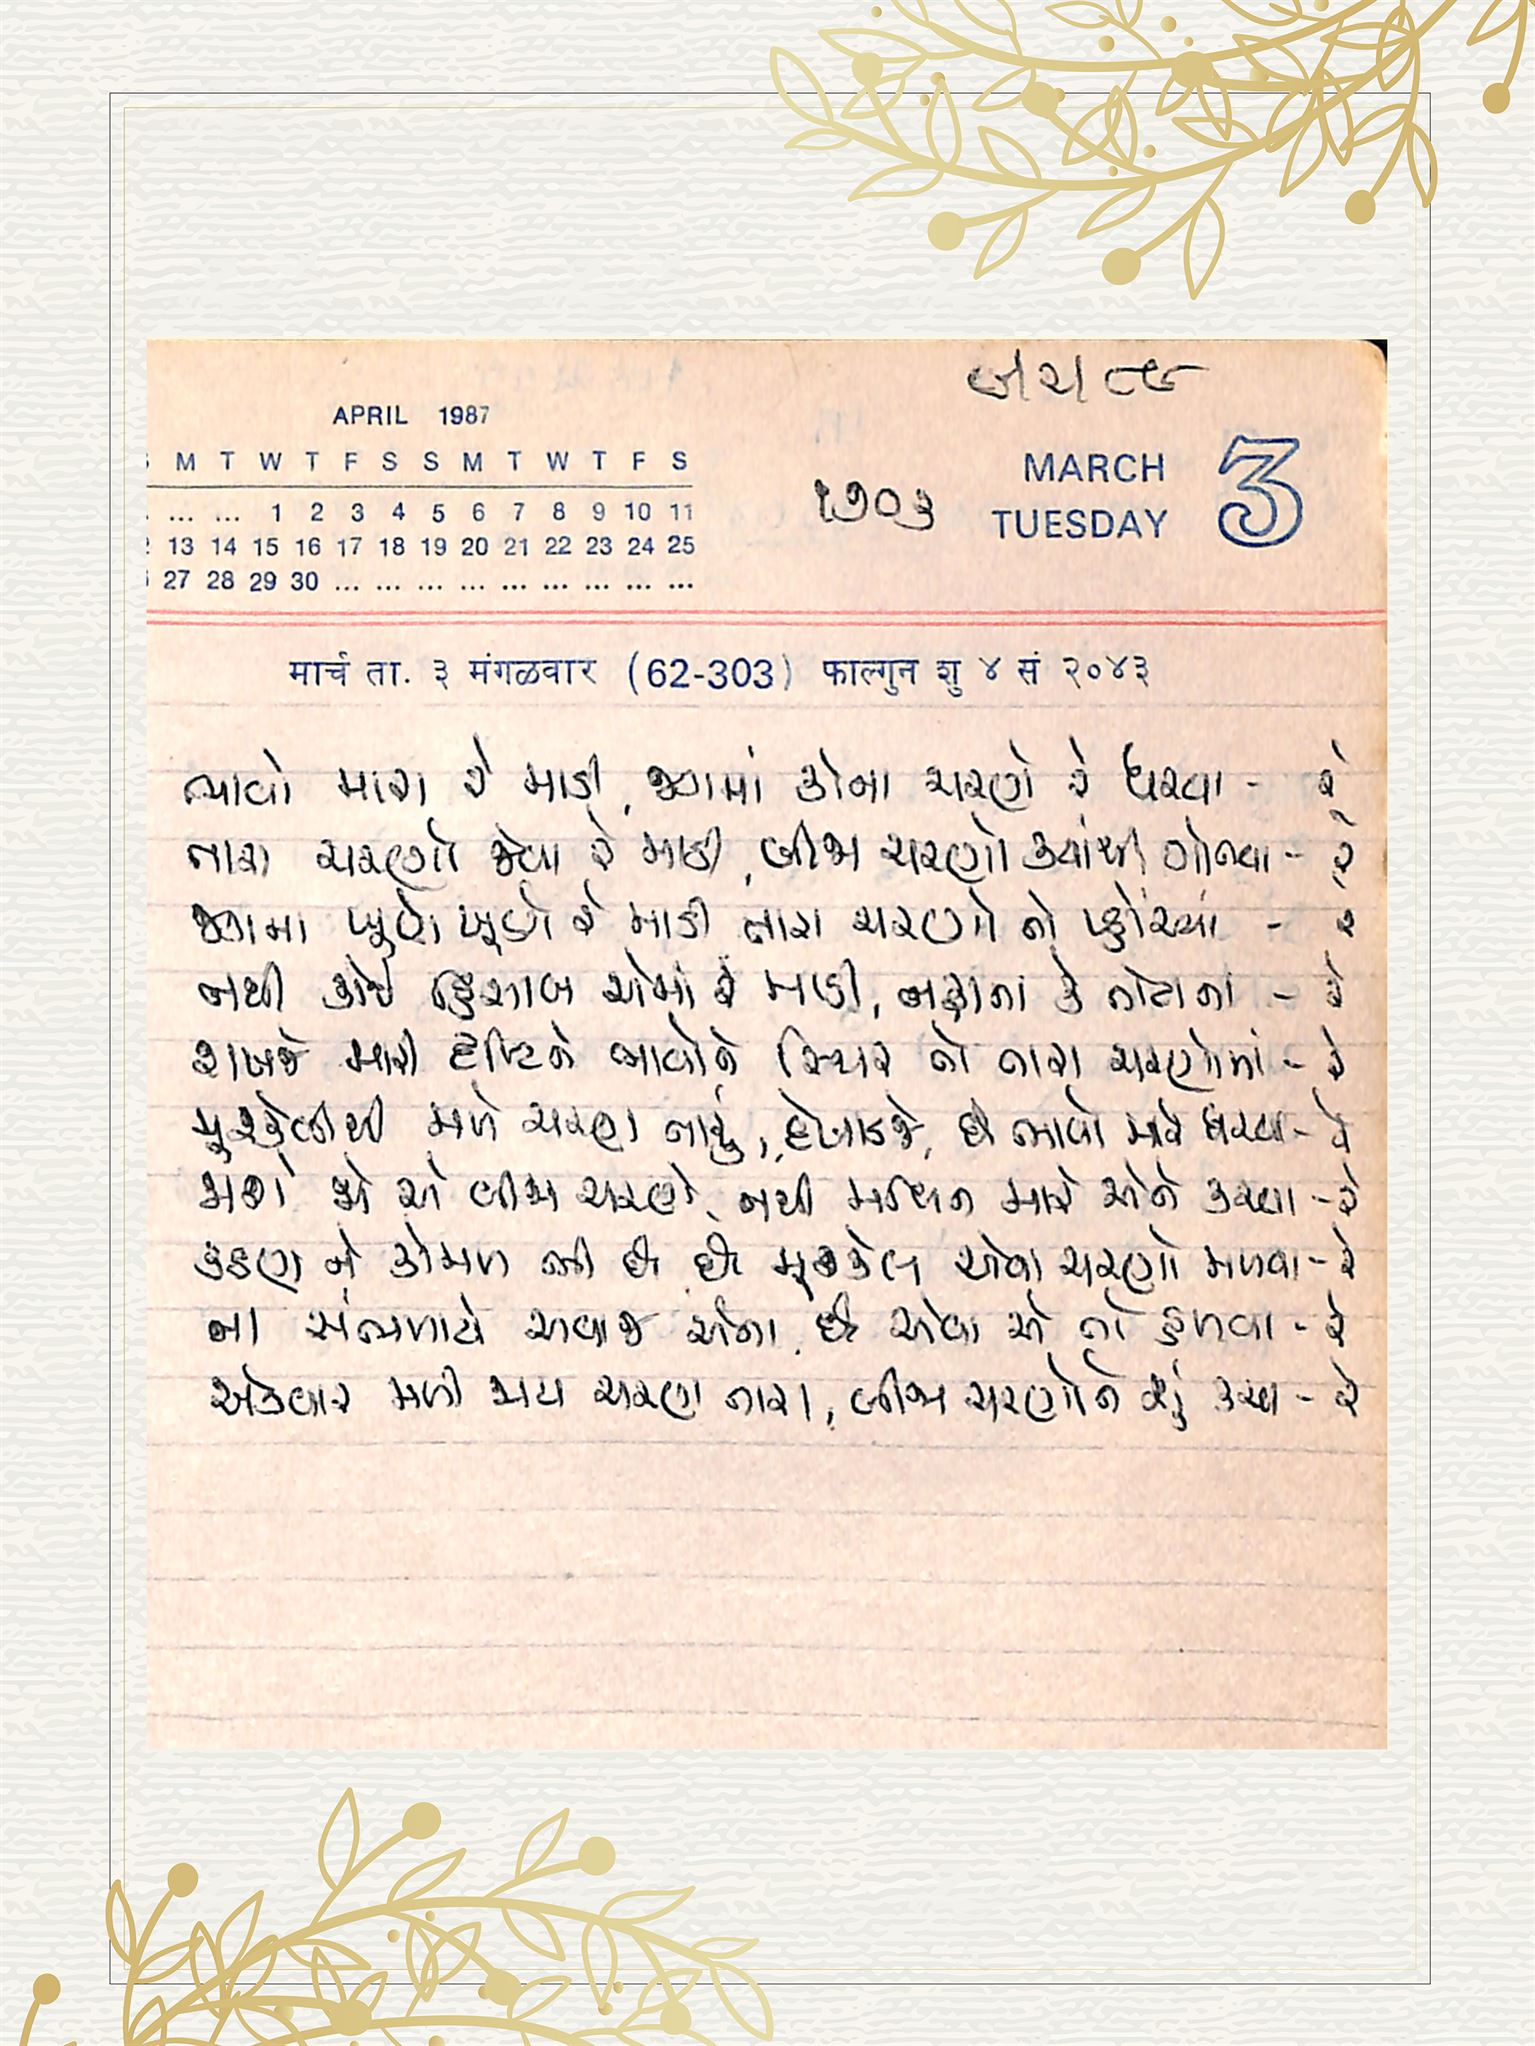 APRIL 1987
M T W T F S S M T W T F S
... ... 1 2 3 4 5 6 7 8 9 10 11
13 14 15 16 17 18 19 20 21 22 23 24 25
27 28 29 30 ... ... ... ... ... ... ... ... ...
૧૭૦૩
MARCH
TUESDAY
3
मार्च ता. ३ मंगळवार (62-303) फाल्गुन शु ४ सं २०४३
ભાવો મારા રે માડી, જગમાં કોના ચરણે રે ધરવા - રે
તારા ચરણો જેવા રે માડી, બીજા ચરણો ક્યાંથી ગોતવા - રે
જગમા ખૂણે ખૂણે રે માડી તારા ચરણો તો ફોર્યાં - રે
નથી કોઈ હિસાબ એમાં રે માડી, નફાનાં કે તોટાનાં - રે
રાખજે મારી દૃષ્ટિને ભાવોને સ્થિર તો તારા ચરણોમાં - રે
મુશ્કેલીથી મળે ચરણ તારું, દેખાડજે, છે ભાવો મારે ધરવા - રે
મળે જો એ બીજા ચરણો, નથી મલિન મારે એને કરવા - રે
કઠણ ને કોમળ ભી છે છે મુશ્કેલ એવા ચરણો મળવા - રે
ના સંભળાયે અવાજ એના, છે એવા એ તો હળવા - રે
એકવાર મળી જાય ચરણ તારા, બીજા ચરણોને શું કરવા - રે